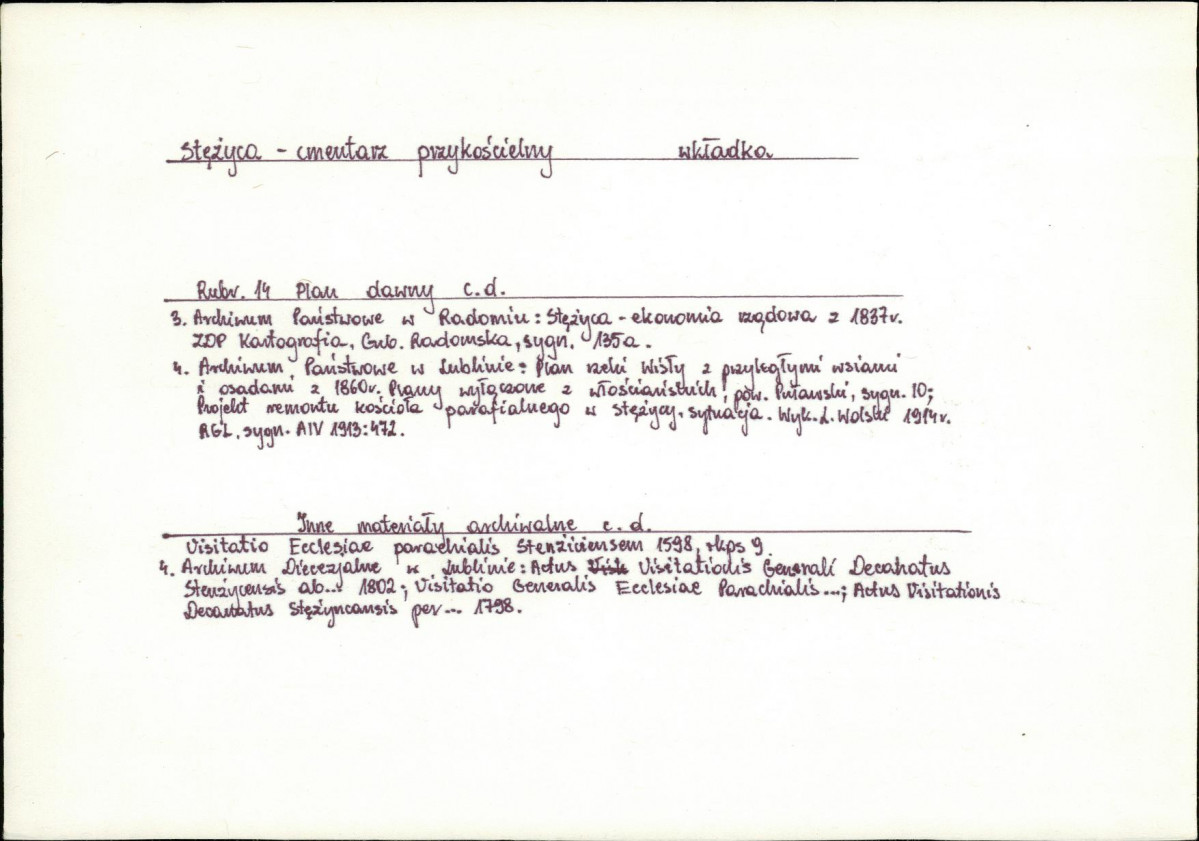 Stężyca - cmentarz przykościelny wkładka
Rubr. 14 Plan dawny c.d.
3. Archiwum Państwowe w Radomiu: Stężyca - ekonomia rządowa z 1837r.
ZDP Kartografia, Gub. Radomska, sygn. 135a.
4. Archiwum Państwowe w Lublinie: Plan rzeki Wisły z przyległymi wsiami
i osadami z 1860r. Plany wyłączone z włościańskich, pow. Puławski, sygn. 10;
Projekt remontu kościoła parafialnego w Stężycy, sytuacja. Wyk. L. Wolski 1914r.
RGL, sygn. AIV 1913:472.
Inne materiały archiwalne c.d.
Visitatio Ecclesiae parachialis Stenziciensem 1598, rkps 9.
4. Archiwum Diecezjalne w Lublinie: Actus Visitationis Generali Decanatus
Stenzycensis ab... 1802; Visitatio Generalis Ecclesiae Parachialis...; Actus Visitationis
Decanatus Stężyncansis per... 1798.